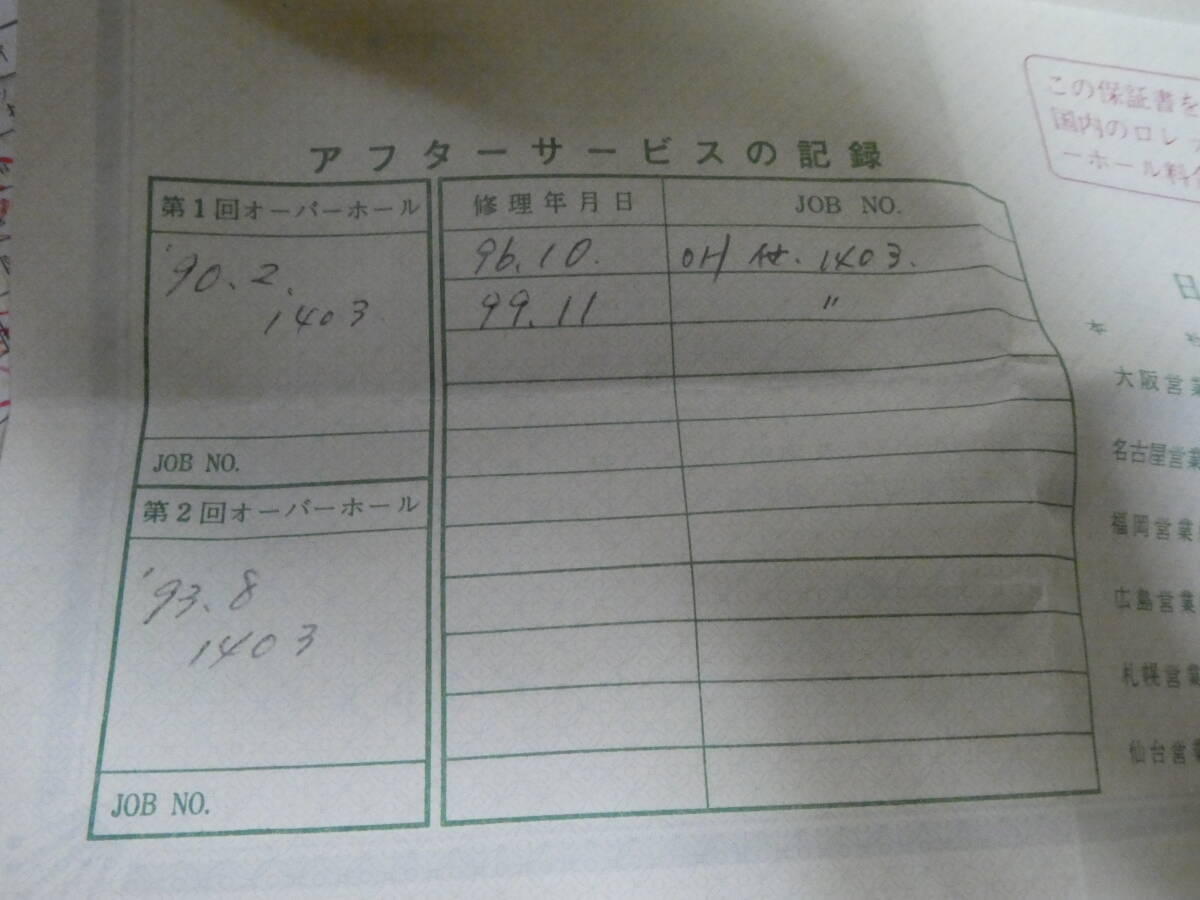 アフターサービスの記録
第1回オーバーホール
'90.2.
1403
JOB NO.
第2回オーバーホール
'93.8
1403
JOB NO.
修理年月日
JOB NO.
96.10.
OH 1403.
99.11
〃
この保証書を
国内のロレ
ーホール料
日
本
大阪営業
名古屋営業
福岡営業
広島営業
札幌営業
仙台営業